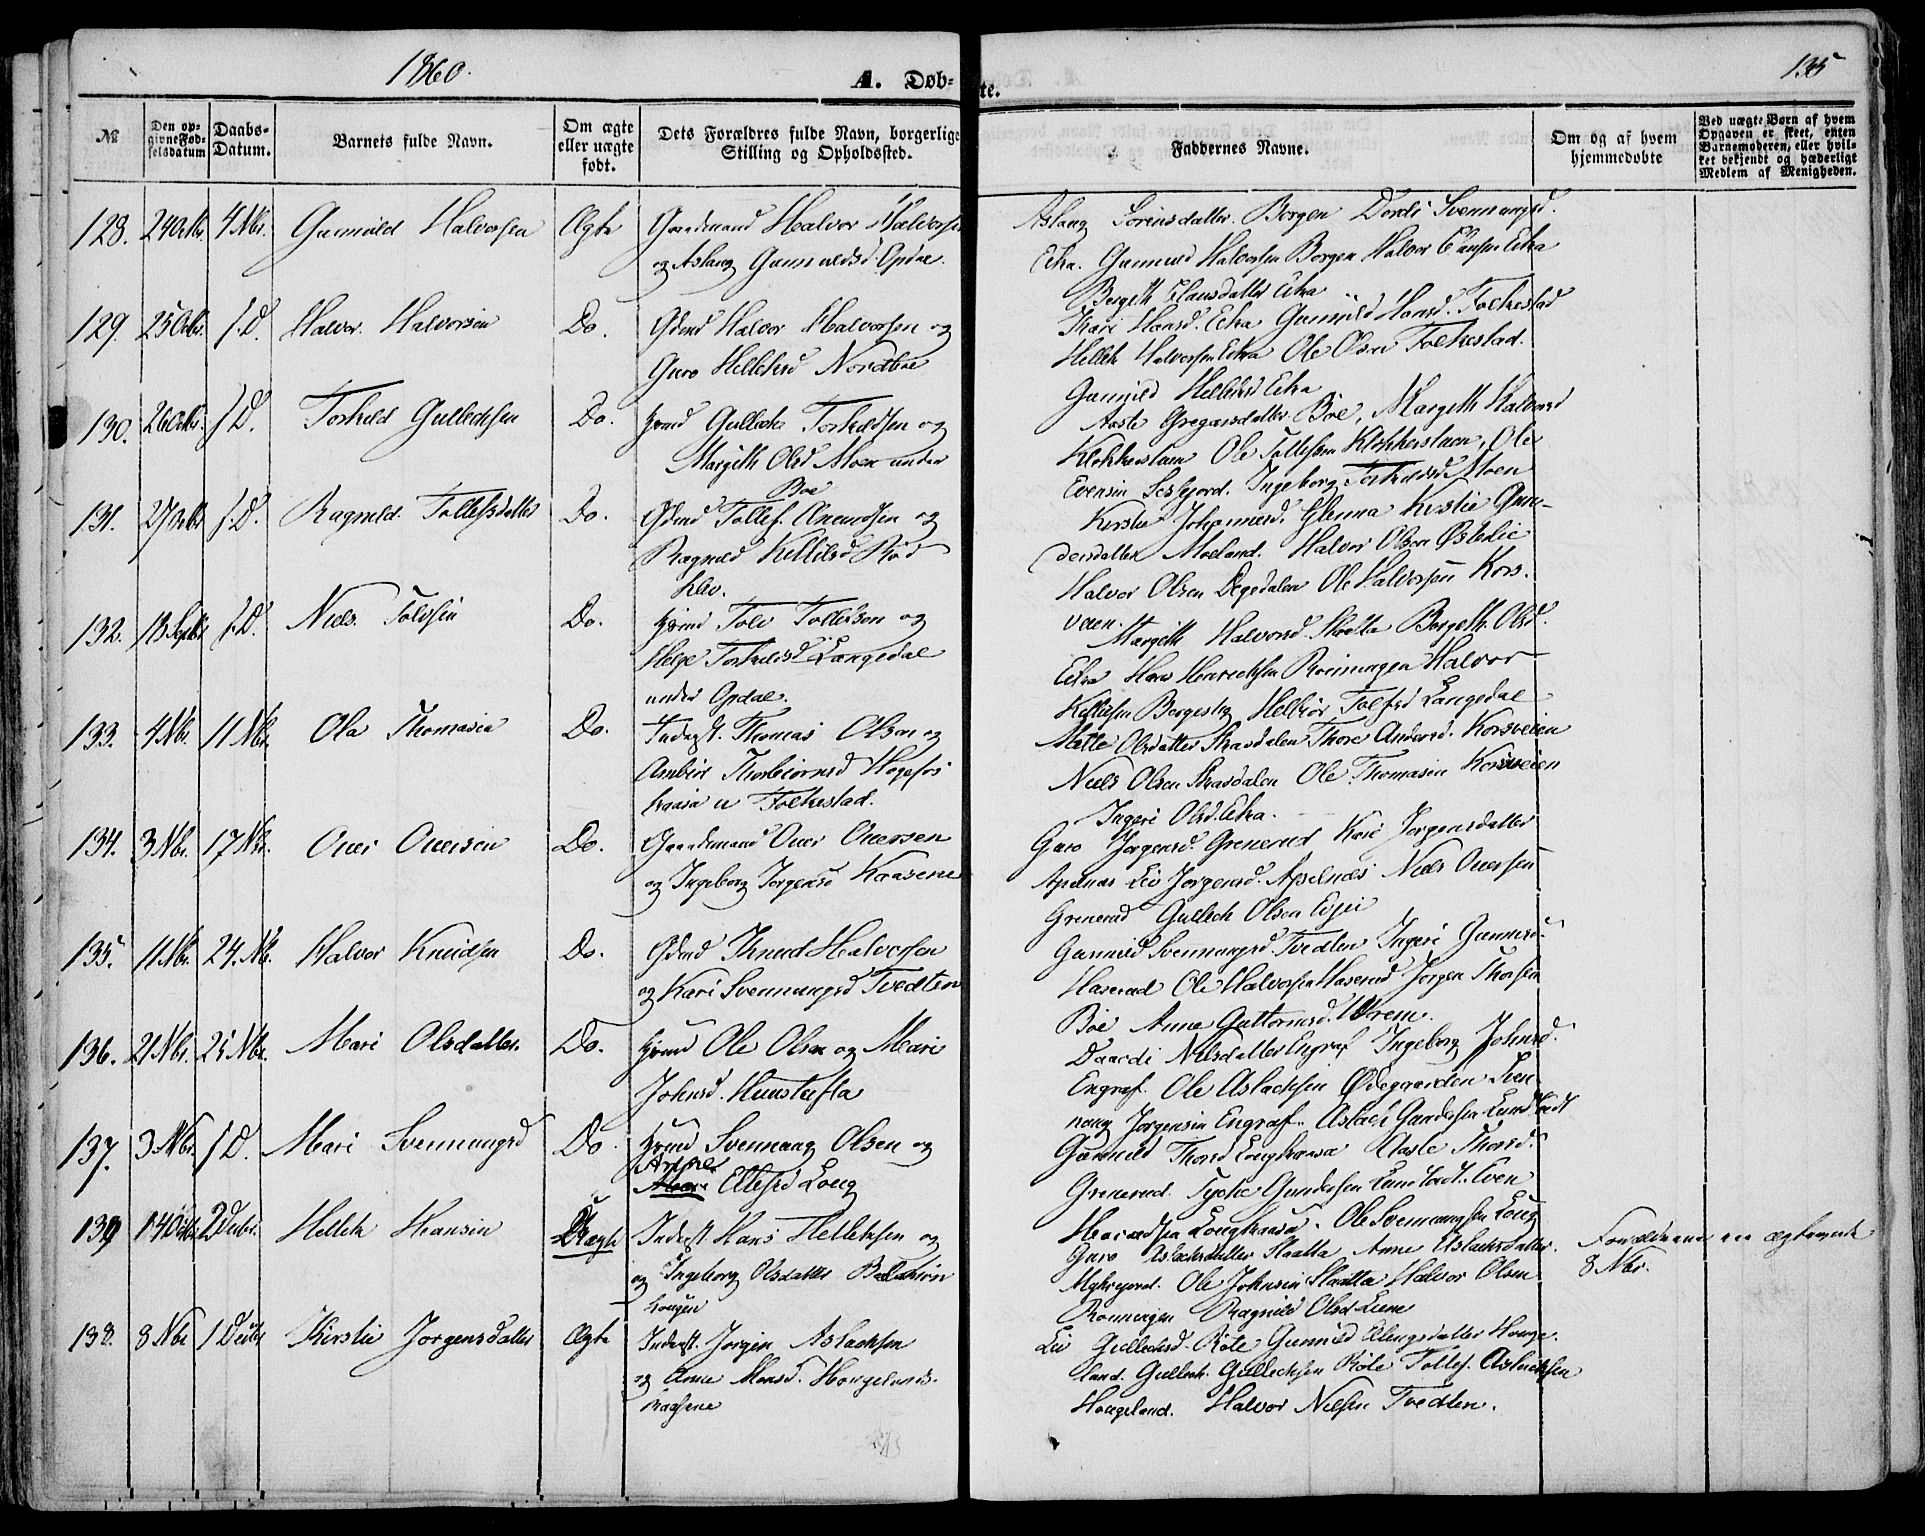 1860.
A. Døb-
te.
135
№
Den op-
givne Fød-
selsdatum
Daabs-
Datum.
Barnets fulde Navn.
Om ægte
eller uægte
født.
Dets Forældres fulde Navn, borgerlige
Stilling og Opholdssted.
Faddernes Navne.
Om og af hvem
hjemmedøbte
Ved uægte Børn af hvem
Opgaven er skeet, enten
Barnemoderen, eller hvil-
ket bekjendt og hæderligt
Medlem af Menigheden.
128. 24 Octbr. 4 Nbr. Gunnuld Halvorsen Ægte Gaardmand Halvor Halvorsen
og Aslaug Gunnuldsd. Opdal.
Aslaug Sörensdatter Borgen Dordi Svennungsd.
Eika. Gunnuld Halvorsen Borgen Halvor Clausen Eika
Bergith Clausdatter Eika
129. 25 Octbr. s. D. Halvor Halvorsen Do. Gdmd Halvor Halvorsen og
Guro Helleksd Nordboe
Kari Hansd. Eika Gunnild Hansd. Folkestad
Hellek Halvorsen Eika Ole Olsen Folkestad.
Gunnild Helleksd Eika
130. 26 Octbr. s. D. Torkild Gulleksen Do. Hmd Gullek Torkildsen og
Margith Olsd Moen under
Boe
Aaste Gregarsdatter Böe, Margith Halvorsd
Klokkerstuen Ole Tollefsen Klokkerstuen, Ole
Evensen Sesfjord. Ingeborg Torkildsd Moen
131. 27 Octbr s. D. Ragnild Tollefsdatter Do. Gdmd Tollef Amundsen og
Ragnild Kittilsd Rö
klev.
Kirstie Johannesd. Glenna Kirstie Gun-
dersdatter Moeland. Halvor Olsen Østerlie
Halvor Olsen Øygedalen Ole Halvorsen Kors-
veien.
132. 13 Septbr s. D. Niels Tolvsen Do. Hmd Tolv Tollefsen og
Helge Torkildsd Langedal
under Opdal.
Margith Halvorsd. Slaatta Bergith Olsd.
Eika Hans Henriksen Ronningen Halvor
Kittilsen Bergestig Helleiör Tolfsd Langedal
133. 4 Nbr. 11 Nbr. Ola Thomasen Do. Inderst. Thomas Olsen og
Ambiör Thorbiörnsd Hogefos
kaasa u Folkestad.
Mette Olsdatter Skaasdalen Thore Andersd. Korsveien
Niels Olsen Skaasdalen Ole Thomasen Korsveien
Ingeri Olsd. Eika.
134. 3 Nbr. 17 Nbr. Over Oversen Do. Gaardmand Over Oversen
og Ingeborg Jorgensd Kaasene
Guro Jorgensd. Grenerud Kari Jorgensdatter
Apelnas Liv Jorgensd. Apelnæs Niels Oversen
Grenerud Gullek Olsen Evjei
135. 11 Nbr. 24. Nb. Halvor Knudsen Do. Gdmd Knud Halvorsen
og Kari Svennungsd Tvedten
Gunnild Svennungsd. Tvedten Ingeri Gunnsd.
Haserud Ole Halvorsen Haserud Jorgen Thorsen
Böe Anne Guttormsd. Vrem.
136. 21 Nbr. 25 Nbr. Mari Olsdatter. Do. Hmd Ole Olsen og Mari
Johnsd. Hunstufta
Daardi Nilsdatter Engraf Ingeborg Johnsd.
Engraf. Ole Aslachsen Ødegaarden Sven-
nung Jorgensen Engraf. Aslach Gundersen Lundstadt
137. 3 Nbr. s. D. Mari Svennungsd Do. Hmd Svennung Olsen og
Ellefsd Loug
Gunnild Thorsd Lougkaasa Aaste Thorsd.
Grenerud. Tyche Gundersen Lundstadt. Even
Havardsen Lougkaasa. Ole Svennungsen Loug
139 14 Octbr. 2 Decbr. Hellek Hansen Uægte Inderst Hans Helleksen og
og Ingeborg Olsdatter
haugen
Guro Aslachsdatter Slaatta Anne Aslachsdatter
Ole Johnsen Slaatta Halvor Olsen
Ronningen Ragnild Olsd. Liene
Forældrene ere ægteviede
8 Nbr.
138. 8 Nbr 1 Decbr Kirstie Jorgensdatter Ægte Inderst. Jorgen Aslachsen
og Anne Monsd. Haugelands-
kaasene
Liv Gulleksd. Röte Gunnild Ellingsdatter Hauge-
land. Gullek Gulleksen Röte Tollef Aslachsen
Haugeland. Halvor Nilsen Tvedten.